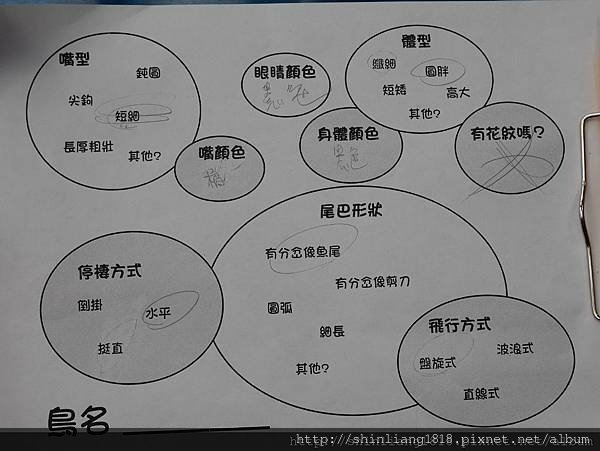 嘴型
鈍圓
尖鉤
短細
長厚粗壯
其他?
眼睛顏色
黑色
體型
纖細
圓胖
短矮
高大
其他?
嘴顏色
橘
身體顏色
黑色
有花紋嗎?
尾巴形狀
有分岔像魚尾
有分岔像剪刀
圓弧
細長
其他?
停棲方式
倒掛
水平
挺直
飛行方式
盤旋式
波浪式
直線式
鳥名
http://shinliang1818.pixnet.net/album